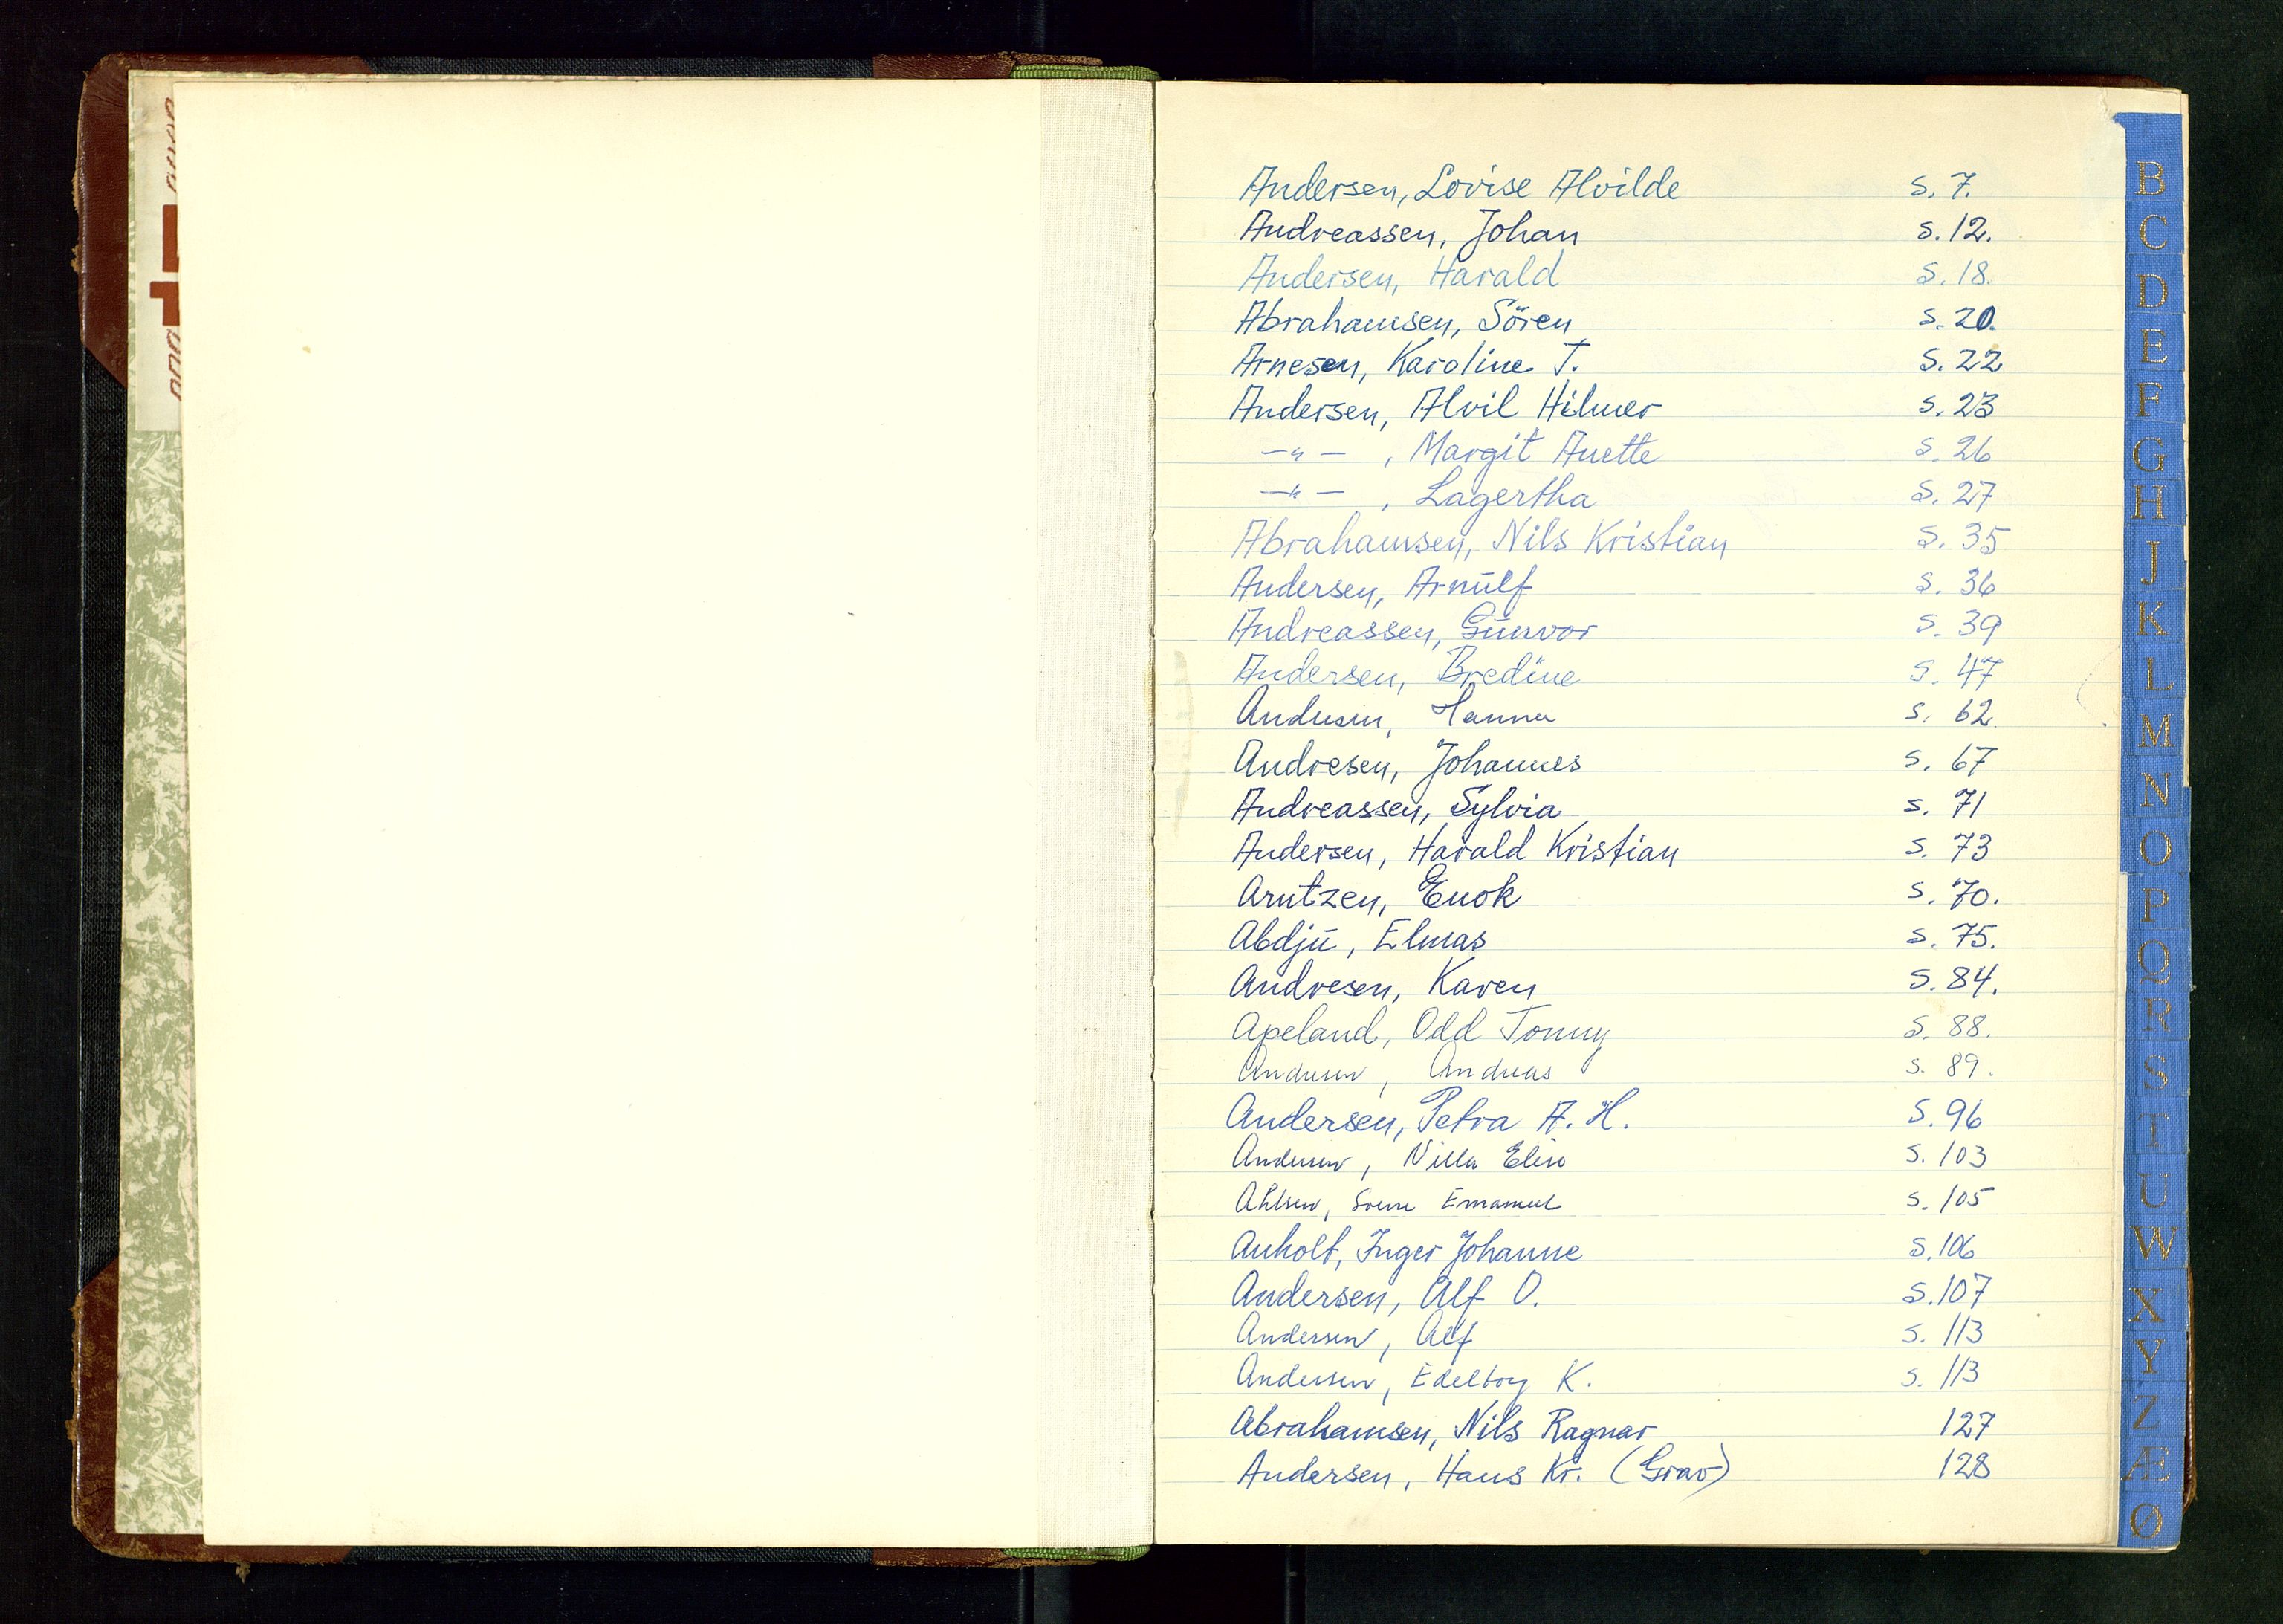 Andersen, Lovise Alvilde s. 7.
Andreassen, Johan s. 12.
Andersen, Harald s. 18.
Abrahamsen, Sören s. 20.
Arnesen, Karoline T. s. 22
Andersen, Alvil Hilmer s. 23
—"— , Margit Anette s. 26
—"— , Lagertha s. 27
Abrahamsen, Nils Kristian s. 35
Andersen, Arnulf s. 36
Andreassen, Gunvor s. 39
Andersen, Bredine s. 47
Andersen, Hanna s. 62.
Andresen, Johannes s. 67
Andreassen, Sylvia s. 71
Andersen, Harald Kristian s. 73
Arntzen, Enok s. 70.
Abdju, Elmas s. 75.
Andresen, Karen s. 84.
Apeland, Odd Tonny s. 88.
Andersen, Andreas s. 89.
Andersen, Petra A. H. s. 96
Andersen, Elise s. 103
Ahlsen, Emanuel s. 105
Anholt, Inger Johanne s. 106
Andersen, Alf O. s. 107
Andersen, Alf s. 113
Andersen, Edelborg K. s. 113
Abrahamsen, Nils Ragnar 127
Andersen, Hans Kr. (Grav) 128
B
C
D
E
F
G
H
J
K
L
M
N
O
P
Q
R
S
T
U
W
X
Y
Z
Æ
Ø